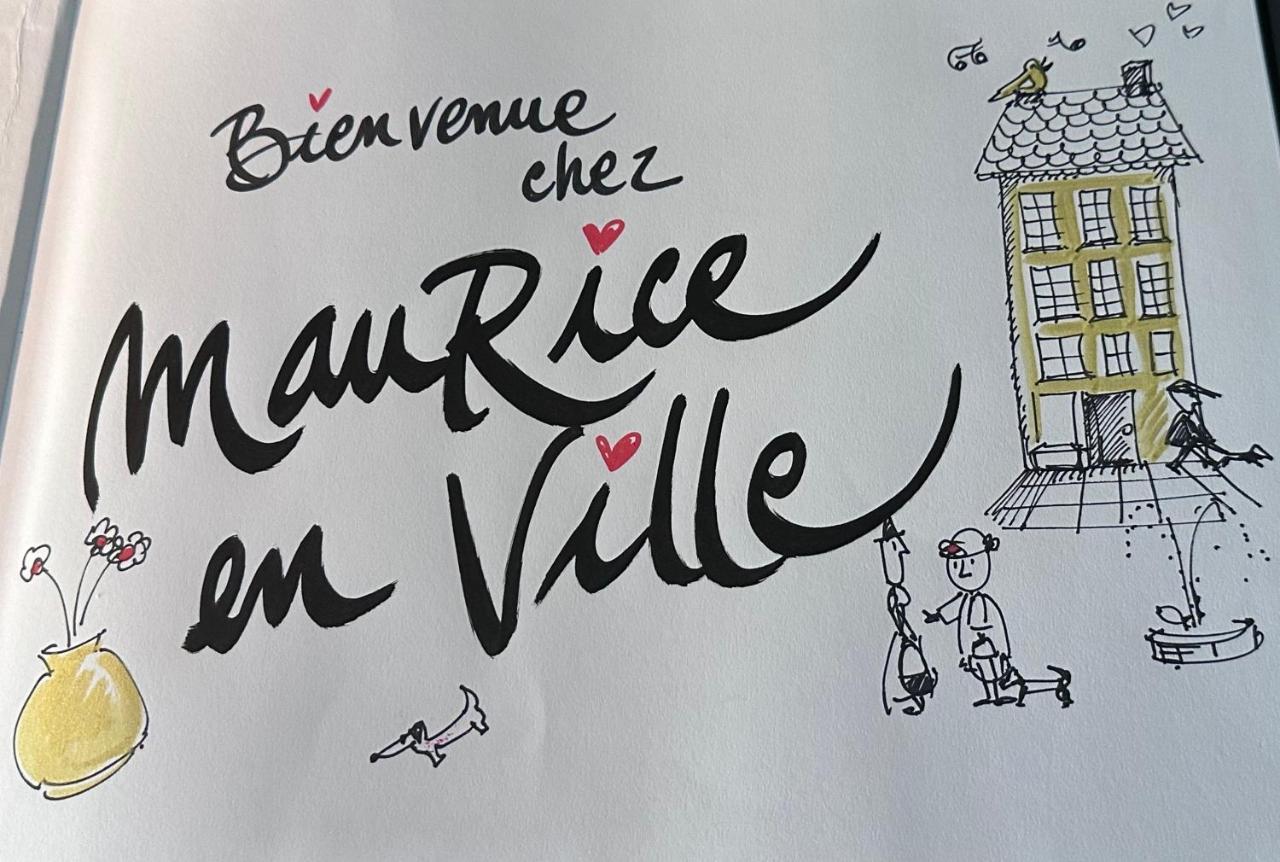 Bienvenue
chez
mauRice
en Ville